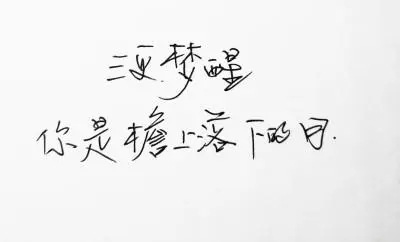 三更梦醒
你是檐上落下的月.